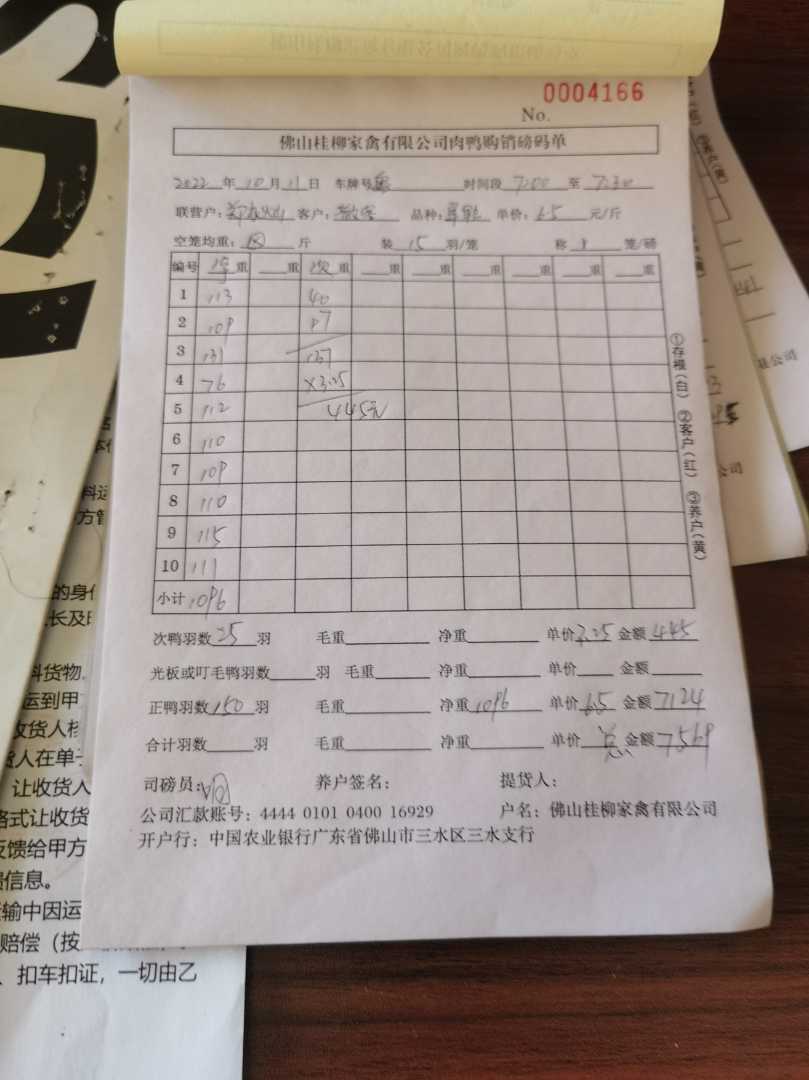 0004166
No.
佛山桂柳家禽有限公司肉鸭购销磅码单
2022 年 10 月 11 日 车牌号 时间段 7:00 至 7:30
联营户: 客户: 品种: 单价: 6.5 元/斤
空笼均重: 斤 装 15 羽/笼 称 1 笼/磅
编号 重 重 次 重 重 重 重 重 重 重
1 113 40
2 109 97
3 131 137
4 76 ×3.25
5 112 445元
6 110
7 109
8 110
9 115
10 111
小计 1096
①存根(白) ②客户(红) ③养户(黄)
次鸭羽数 25 羽 毛重 净重 单价 3.25 金额 445
光板或叮毛鸭羽数 羽 毛重 净重 单价 金额
正鸭羽数 150 羽 毛重 净重 1096 单价 6.5 金额 7124
合计羽数 羽 毛重 净重 单价 总 金额 7569
司磅员: 养户签名: 提货人:
公司汇款账号: 4444 0101 0400 16929 户名: 佛山桂柳家禽有限公司
开户行: 中国农业银行广东省佛山市三水区三水支行
的身份
长及时
料货物
运到甲方
收货人核
货人在单
让收货人
格式让收货
反馈给甲方
信息。
输中因运
赔偿（按
、扣车扣证，一切由乙